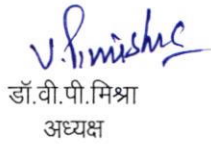 V.P.mishra
डॉ.वी.पी.मिश्रा
अध्यक्ष